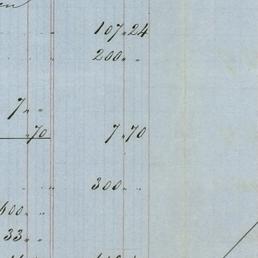 107.24
200. .
7. .
.70 7.70
300. .
600. .
33. .